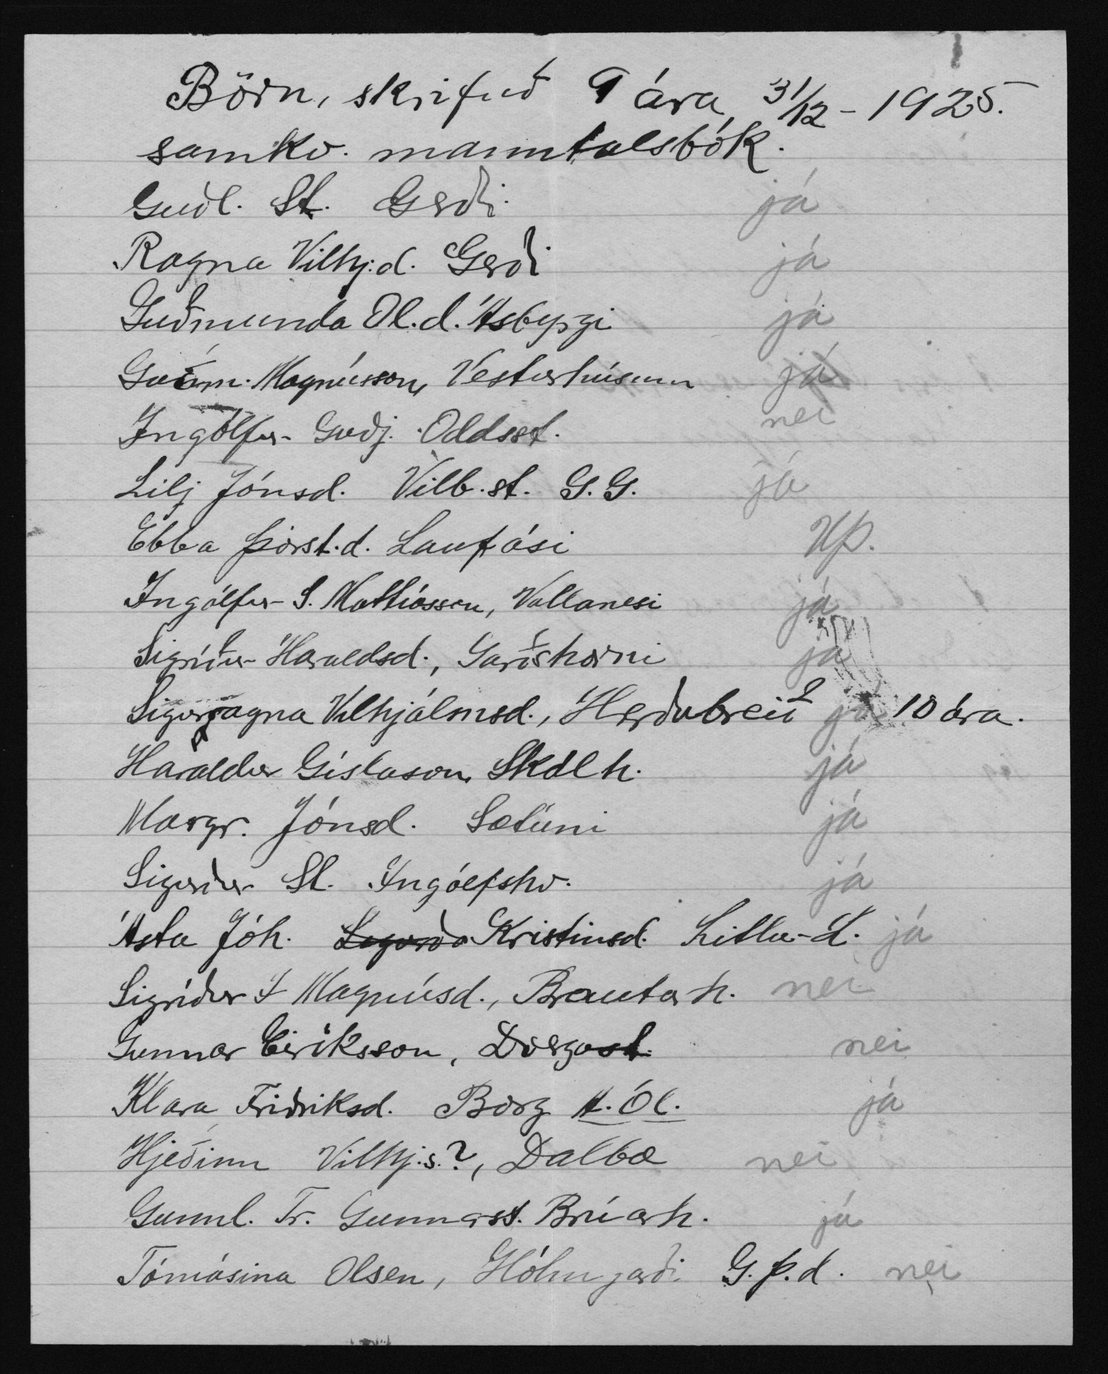 Börn, skrifuð 9 ára 31/12 - 1925.
samkv. manntalsbók.
Guðl. St. Gerði. já
Ragna Vilhj.d. Gerði já
Guðmunda Ól.d. Ásbyrgi já
Guðm. Magnússon, Vesturhúsum já
Ingólfur Guðj. Oddsst. nei
Lilj Jónsd. Vilb.st. G.G. já
Ebba Þorst.d. Laufási UÞ.
Ingólfur S. Matthíasson, Vallanesi já
Sigríður Haraldsd., Garðshorni já
Sigurragna Vilhjálmsd., Herðubreið? já 10 ára.
Haraldur Gíslason, Skálh. já
Margr. Jónsd. Sætúni já
Sigurður St. Ingólfshv. já
Ásta Jóh. Kristinsd. Litlu-L. já
Sigríður Magnúsd., Brautarh. nei
Gunnar Eiríksson, Dvergast. nei
Klara Friðriksd. Borg A.Ól. já
Hjeðinn Vilhj.s.?, Dalbæ nei
Gunnl. Tr. Gunnarss. Brúarh. já
Tómásína Olsen, Hólmgarði G.Þ.d. nei